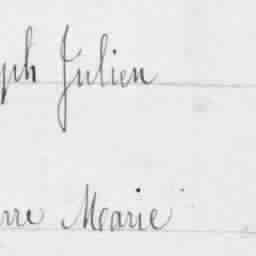 ph Julien
rre Marie